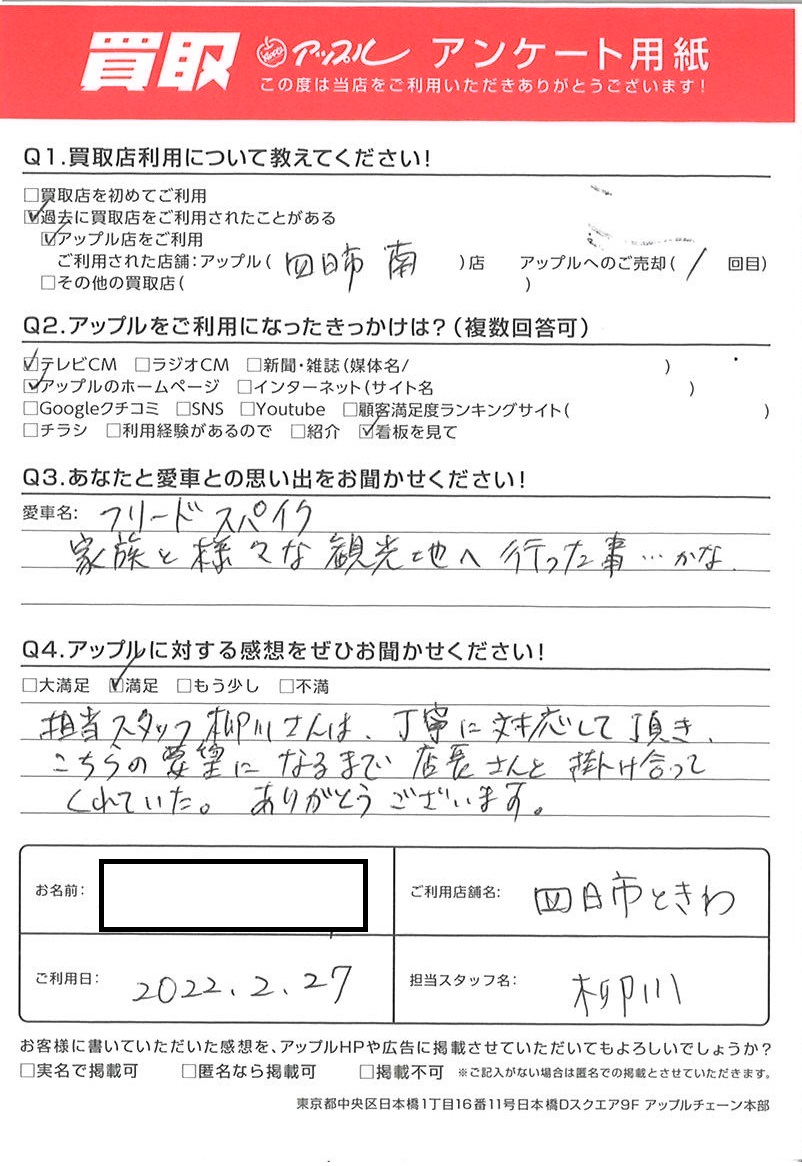 買取 アップル アンケート用紙
この度は当店をご利用いただきありがとうございます！
Q1.買取店利用について教えてください！
□買取店を初めてご利用
☑過去に買取店をご利用されたことがある
☑アップル店をご利用
ご利用された店舗：アップル（ 四日市 南 ）店 アップルへのご売却（ 1 回目）
□その他の買取店（ ）
Q2.アップルをご利用になったきっかけは？（複数回答可）
☑テレビCM □ラジオCM □新聞・雑誌（媒体名/ ）
☑アップルのホームページ □インターネット（サイト名 ）
□Googleクチコミ □SNS □Youtube □顧客満足度ランキングサイト（ ）
□チラシ □利用経験があるので □紹介 ☑看板を見て
Q3.あなたと愛車との思い出をお聞かせください！
愛車名： フリード スパイク
家族と様々な観光地へ行った事…かな.
Q4.アップルに対する感想をぜひお聞かせください！
□大満足 ☑満足 □もう少し □不満
担当スタッフ柳川さんは、丁寧に対応して頂き、
こちらの要望になるまで店長さんと掛け合って
くれていた。ありがとうございます。
お名前： ご利用店舗名： 四日市ときわ
ご利用日： 2022.2.27 担当スタッフ名： 柳川
お客様に書いていただいた感想を、アップルHPや広告に掲載させていただいてもよろしいでしょうか？
□実名で掲載可 □匿名なら掲載可 □掲載不可 ※ご記入がない場合は匿名での掲載とさせていただきます。
東京都中央区日本橋1丁目16番11号日本橋Dスクエア9F アップルチェーン本部